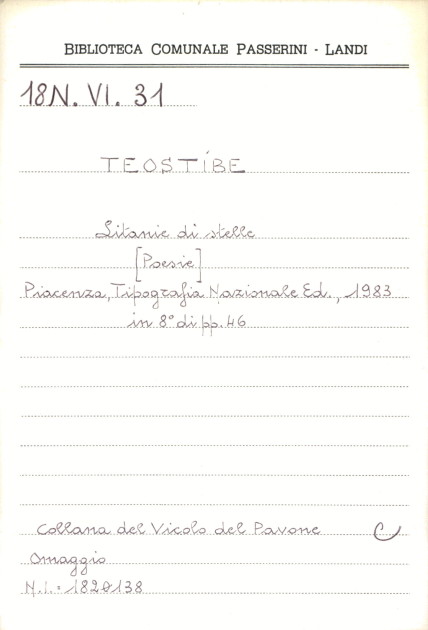 BIBLIOTECA COMUNALE PASSERINI - LANDI
18N. VI. 31
TEOSTIBE
Litanie di stelle
[Poesie]
Piacenza, Tipografia Nazionale Ed., 1983
in 8° di pp. 46
Collana del Vicolo del Pavone C
Omaggio
N.I. = 1820138